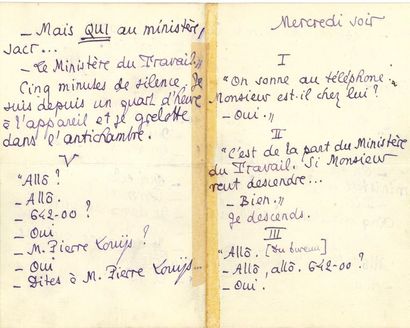 — Mais QUI au ministère,
sacr...
— Le Ministère du Travail."
Cinq minutes de silence. Je
suis depuis un quart d'heure
à l'appareil et je grelotte
dans l'antichambre.
V
"Allô ?
— Allô.
— 642-00 ?
— Oui
— M. Pierre Louÿs ?
— Oui
— Dites à M. Pierre Louÿs...
Mercredi soir
I
"On sonne au téléphone.
Monsieur est-il chez lui ?
— Oui."
II
"C'est de la part du Ministère
du Travail. Si Monsieur
veut descendre...
— Bien."
Je descends.
III
"Allô. [Du bureau]
— Allô, allô. 642-00 ?
— Oui.